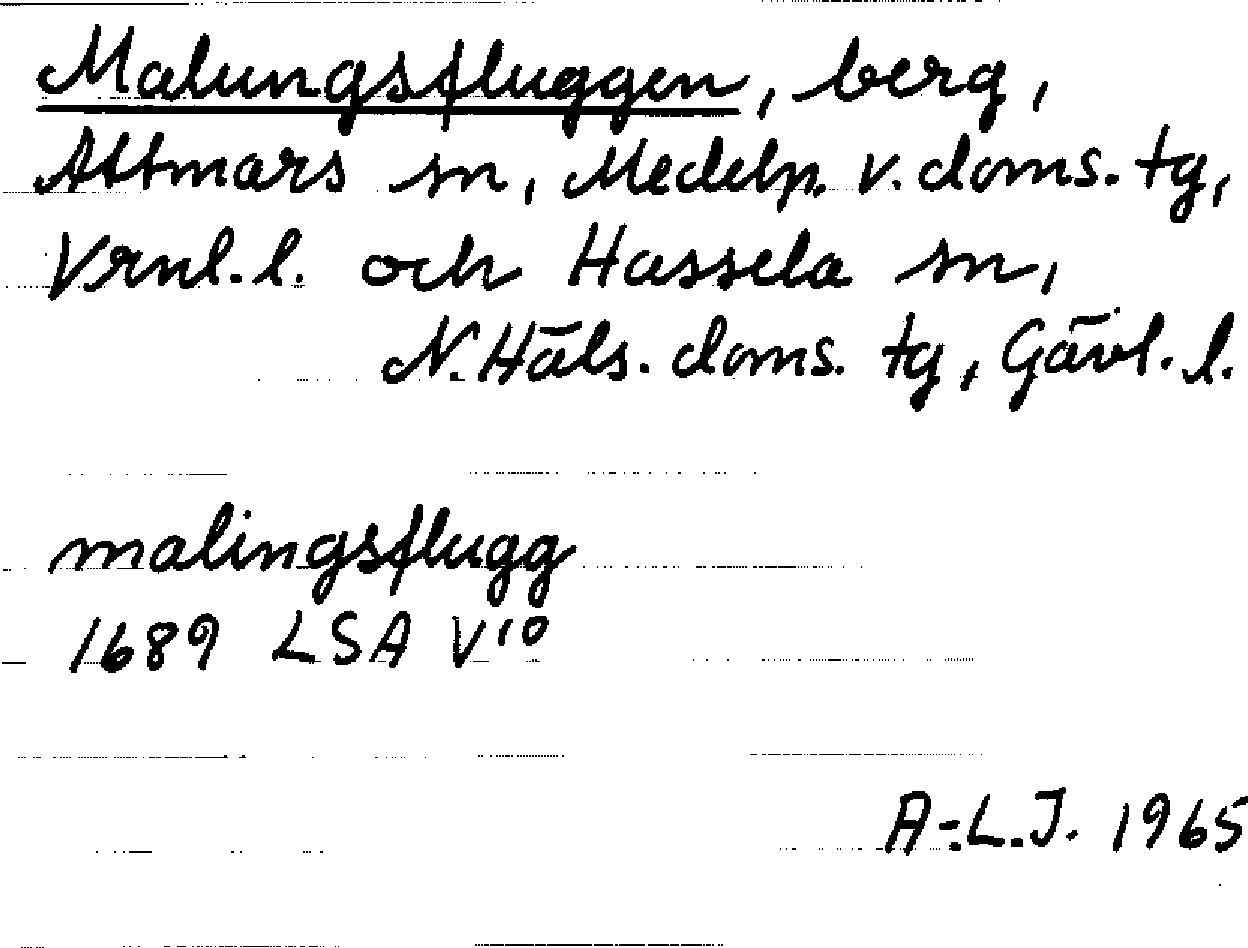 Malungsfluggen, berg,
Attmars sn, Medelp. v. doms. tg,
Vrnl. l. och Hassela sn,
N. Häls. doms. tg, Gävl. l.
malingsflugg
1689 LSA V 10
A-L.J. 1965